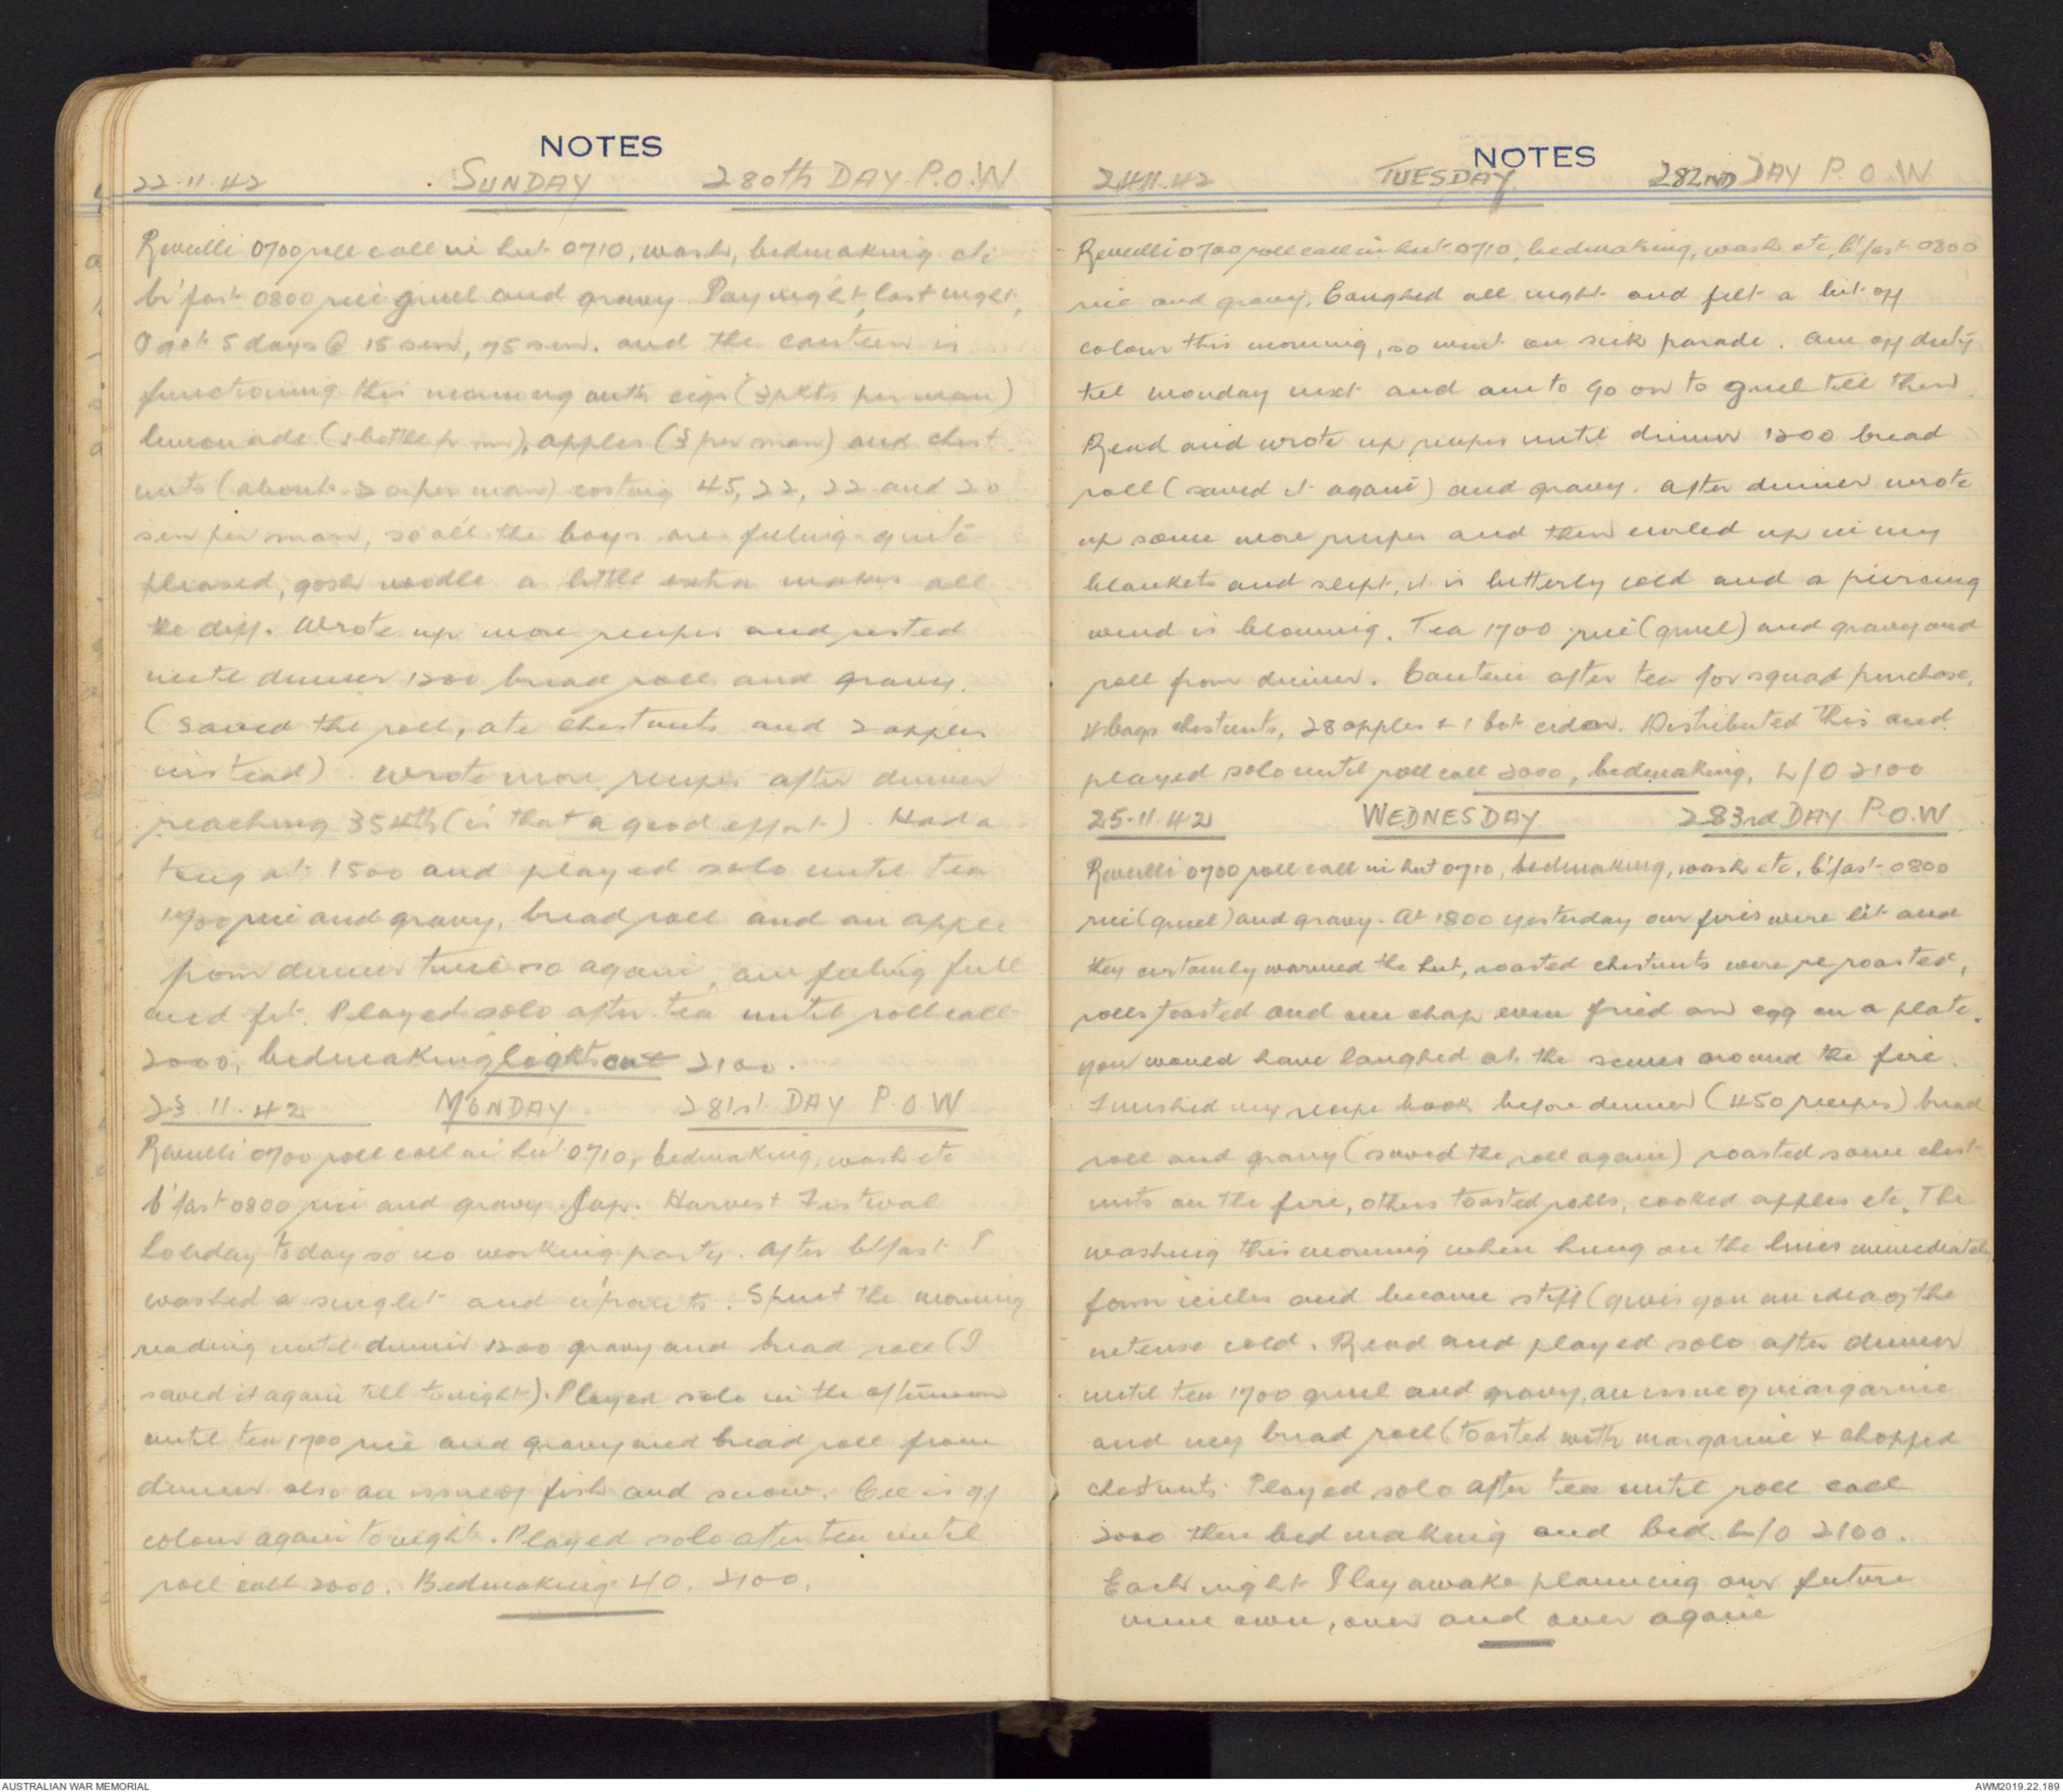 NOTES
22.11.42 SUNDAY 280th DAY P.O.W
Reveilli 0700 roll call in hut 0710, wash, bedmaking etc
b'fast 0800 rice gruel and gravy. Pay night, last night,
I got 5 days @ 15 sen, 75 sen. and the canteen is
functioning this morning with cigs (3 pkts per man)
lemonade (1 bottle per man), apples (3 per man) and chest
nuts (about per man) costing 45, 22, 22 and 20
sen per man, so all the boys are feeling quite
pleased, gosh noodle a little extra makes all
the diff. Wrote up more recipes and rested
until dinner 1200 bread roll and gravy.
(saved the roll, ate chestnuts and 2 apples
instead). Wrote more recipes after dinner
reaching 354th (is that a good effort). Had a
tong at 1500 and played solo until tea
1700 rice and gravy, bread roll and an apple
from dinner time so again, am feeling full
and fit. Played solo after tea until roll call
2000, bedmaking lights out 2100.
23.11.42 MONDAY 281st DAY P.O.W
Reveilli 0700 roll call in hut 0710, bedmaking, wash etc
b'fast 0800 rice and gravy. Jap. Harvest Festival
holiday today so no working party. After b'fast I
washed a singlet and u'pants. Spent the morning
reading until dinner 1200 gravy and bread roll (I
saved it again till tonight). Played solo in the afternoon
until tea 1700 rice and gravy and bread roll from
dinner also an issue of fish and snow. Cec is off
colour again tonight. Played solo after tea until
roll call 2000. Bedmaking L/O. 2100.
NOTES
24.11.42 TUESDAY 282ND DAY P.O.W
Reveilli 0700 roll call in hut 0710, bedmaking, wash etc, b'fast 0800
rice and gravy. Coughed all night and felt a bit off
colour this morning, so went on sick parade. Am off duty
till Monday next and am to go on to gruel till then.
Read and wrote up recipes until dinner 1200 bread
roll (saved it again) and gravy. After dinner wrote
up some more recipes and then curled up in my
blankets and slept, it is bitterly cold and a piercing
wind is blowing. Tea 1700 rice (gruel) and gravy and
roll from dinner. Canteen after tea for squad purchase,
4 bags chestnuts, 28 apples + 1 bot cider. Distributed this and
played solo until roll call 2000, bedmaking, L/O 2100
25.11.42 WEDNESDAY 283rd DAY P.O.W
Reveilli 0700 roll call in hut 0710, bedmaking, wash etc, b'fast 0800
rice (gruel) and gravy. At 1800 yesterday our fires were lit and
they certainly warmed the hut, roasted chestnuts were re roasted,
rolls toasted and one chap even fried an egg on a plate.
you would have laughed at the scenes around the fire.
Finished my recipe book before dinner (450 recipes) bread
roll and gravy (saved the roll again) roasted some chest
nuts on the fire, others toasted rolls, cooked apples etc. The
washing this morning when hung on the lines immediately
form icicles and became stiff (gives you an idea of the
intense cold. Read and played solo after dinner
until tea 1700 gruel and gravy, an issue of margarine
and my bread roll (toasted with margarine + chopped
chestnuts. Played solo after tea until roll call
2000 then bed making and bed. L/O 2100.
Each night I lay awake planning our future
mine own, over and over again
AUSTRALIAN WAR MEMORIAL
AWM2019.22.189